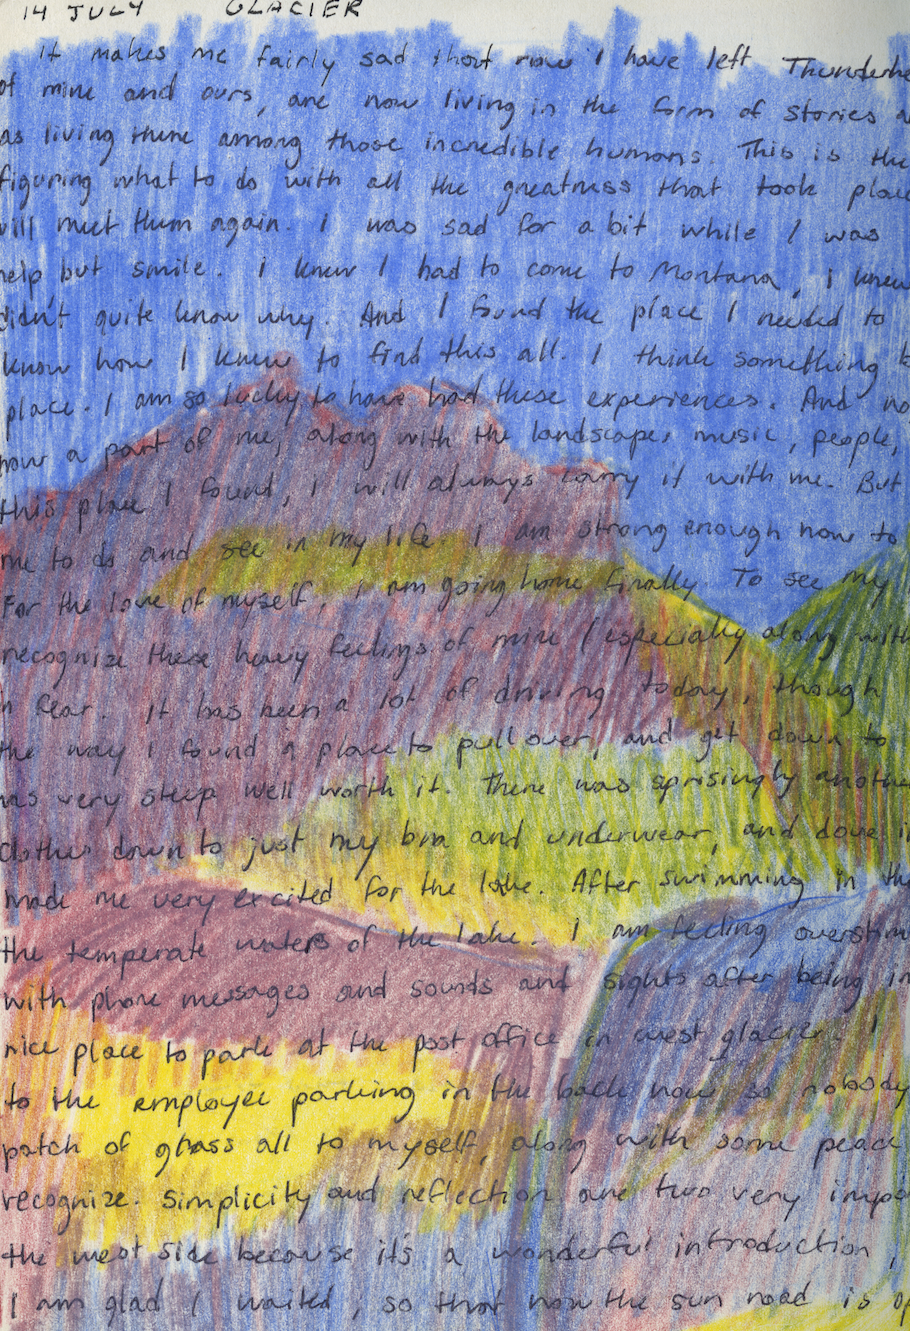 14 JULY GLACIER
It makes me fairly sad that now I have left Thunderhe
of mine and ours, are now living in the form of stories a
as living there among those incredible humans. This is the
figuring what to do with all the greatness that took place
will meet them again. I was sad for a bit while I was
help but smile. I knew I had to come to Montana, I knew
didn't quite know why. And I found the place I needed to
know how I knew to find this all. I think something b
place. I am so lucky to have had these experiences. And no
now a part of me, along with the landscape, music, people,
this place I found, I will always carry it with me. But
me to do and see in my life. I am strong enough now to
For the love of myself, I am going home finally. To see my
recognize these heavy feelings of mine (especially along with
n fear. It has been a lot of driving today, though
the way I found a place to pull over, and get down to
was very steep well worth it. There was sprisingly another
clothes down to just my bra and underwear, and dove i
made me very excited for the lake. After swimming in the
the temperate waters of the lake. I am feeling overstim
with phone messages and sounds and sights after being in
nice place to park at the post office in west glacier. I
to the employee parking in the back now so nobody
patch of grass all to myself, along with some peace
recognize. Simplicity and reflection are two very impo
the west side because it's a wonderful introduction,
I am glad I waited, so that now the sun road is op